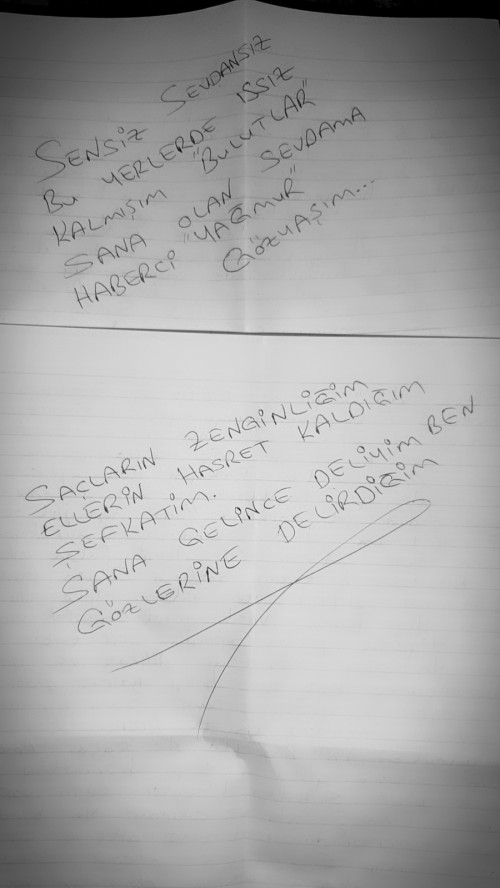 SENSİZ SEVDANSIZ
BU YERLERDE ISSIZ
KALMIŞIM "BULUTLAR"
SANA OLAN SEVDAMA
HABERCİ "YAĞMUR"
GÖZYAŞIM...
SAÇLARIN ZENGİNLİĞİM
ELLERİN HASRET KALDIĞIM
ŞEFKATİM.
SANA GELİNCE DELİYİM BEN
GÖZLERİNE DELİRDİĞİM